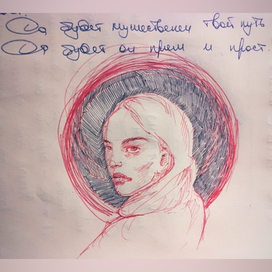 Да будет мужественен твой путь
Да будет он прям и прост